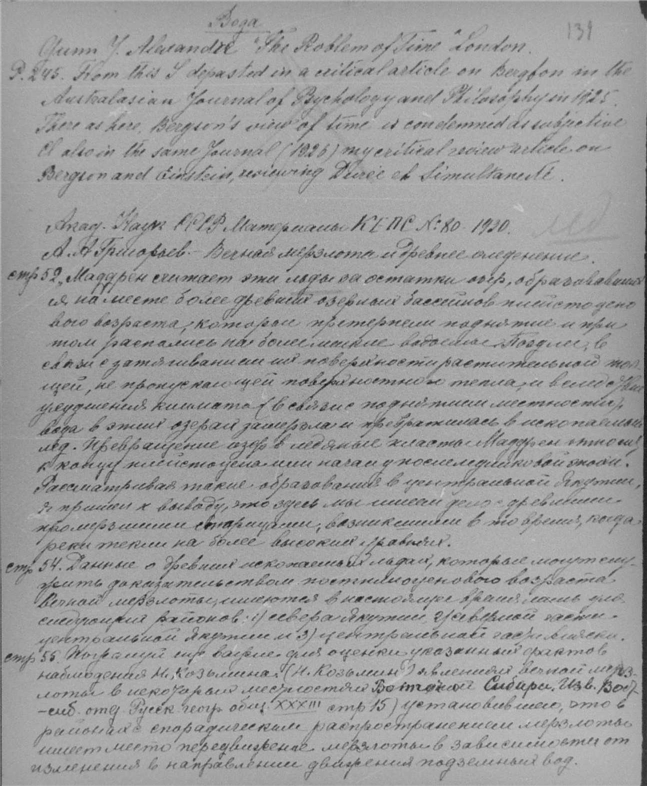 Вода
139
Gunn J. Alexandre "The Roblem of Time" London.
P. 245. From this I departed in a critical article on Bergson in the
Australasian Journal of Psychology and Philosophy in 1925.
There as here, Bergson's view of time is condemned as subjective
Cl also in the same Journal (1926) my critical review article on
Bergson and Einstein, reviewing Durée et Simultanéité.
Акад. Наук СССР Материалы КЕПС № 80 1930.
лёд
А. А. Григорьев – Вечная мерзлота и древнее оледенение.
стр 52, Маддрен считает эти льды за остатки озер, образовавших
ся на месте более древних озерных бассейнов плейстоцено
вого возраста, которые претерпели поднятие и при
том распались на более мелкие водоемы. Позднее, в
связи с затягиванием их поверхности растительной тол
щей, не пропускающей поверхностного тепла, и вследствие
ухудшения климата (в связи с поднятием местности)
вода в этих озерах замерзла и превратилась в ископаемый
лёд. Превращение озер в ледяные пласты Маддрен относит
к концу плейстоцена или началу последниковой эпохи.
Рассматривая такие образования в центральной Якутии,
я пришел к выводу, что здесь мы имеем дело с древними
промерзшими старицами, возникшими в то время, когда
реки текли на более высоких уровнях.
стр 54. Данные о древних ископаемых льдах, которые могут слу
жить доказательством постплиоценового возраста
вечной мерзлоты, имеются в настоящее время лишь для
следующих районов: 1) севера Якутии, 2) северной части
центральной Якутии и 3) центральной части Аляски.
стр 55. Пожалуй еще важнее для оценки указанных фактов
наблюдения Н. Козьмина (Н. Козьмин О явлениях вечной мерз
лоты в некоторых местностях Восточной Сибири. Изв. Вост
-сиб. отд Русск. геогр общ. XXXIII стр 15) установившего, что в
районах с спорадическим распространением мерзлоты
имеет место передвижение мерзлоты в зависимости от
изменения в направлении движения подземных вод.